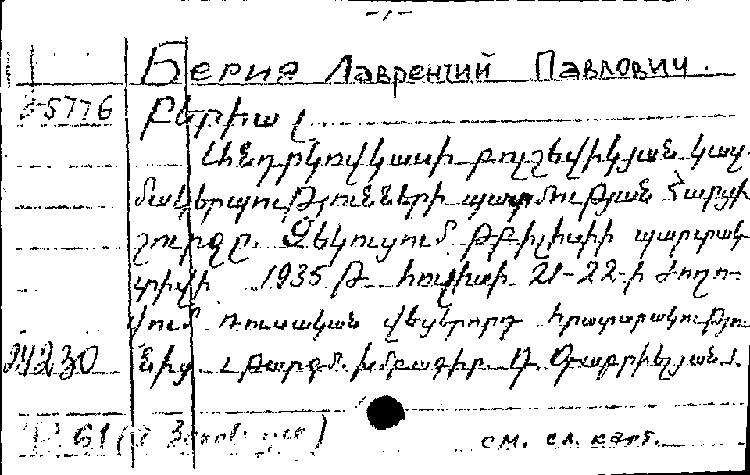 -1-
Берия Лаврентий Павлович.
35776 Բերիա Լ.
Անդրկովկասի բոլշևիկյան կազ-
մակերպությունների պատմության հարցի
շուրջը. Զեկուցում Թբիլիսիի պարտակ-
տիվի 1935 թ. հուլիսի 21-22-ի ժողո-
վում. Ռուսական վեցերորդ հրատարակությու-
նից. Թարգմ. խմբագիր
61 см. сл. карт.